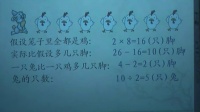 假设笼子里全都是鸡: 2×8=16(只)脚
实际比假设多几只脚: 26-16=10(只)脚
一只兔比一只鸡多几只脚: 4-2=2(只)脚
兔的只数: 10÷2=5(只)兔